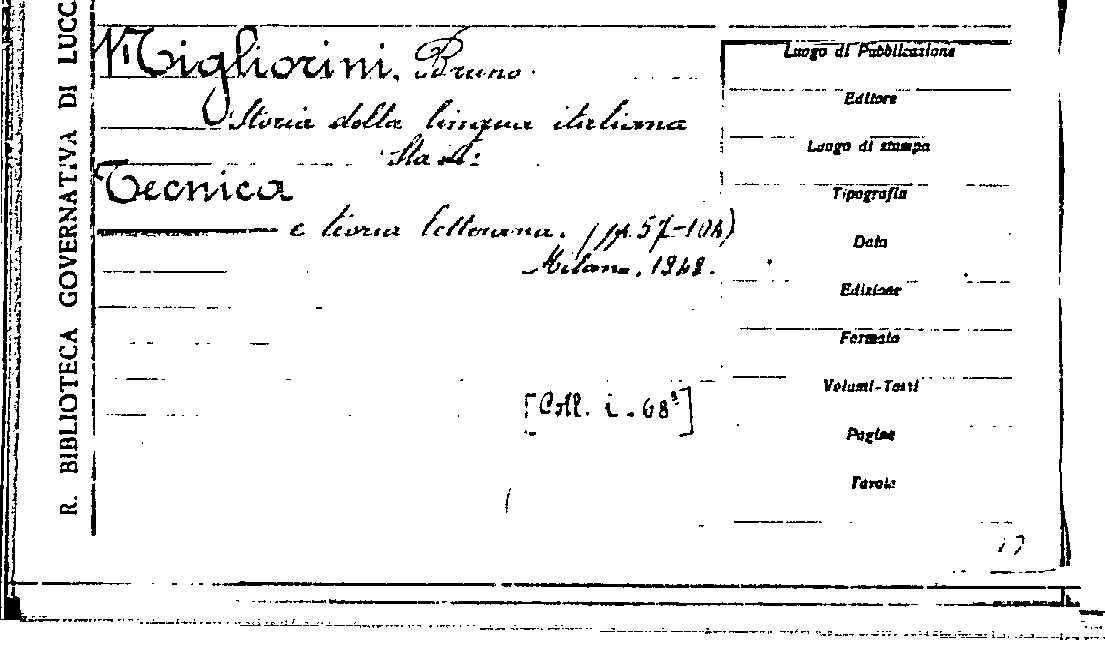 R. BIBLIOTECA GOVERNATIVA DI LUCC
Migliorini, Bruno.
Storia della lingua italiana
Sta in:
Tecnica
e teoria letteraria. (pp. 57-104)
Milano, 1948.
[Coll. i. 68³]
Luogo di Pubblicazione
Editore
Luogo di stampa
Tipografia
Data
Edizione
Formato
Volumi-Tomi
Pagine
Tavole
17